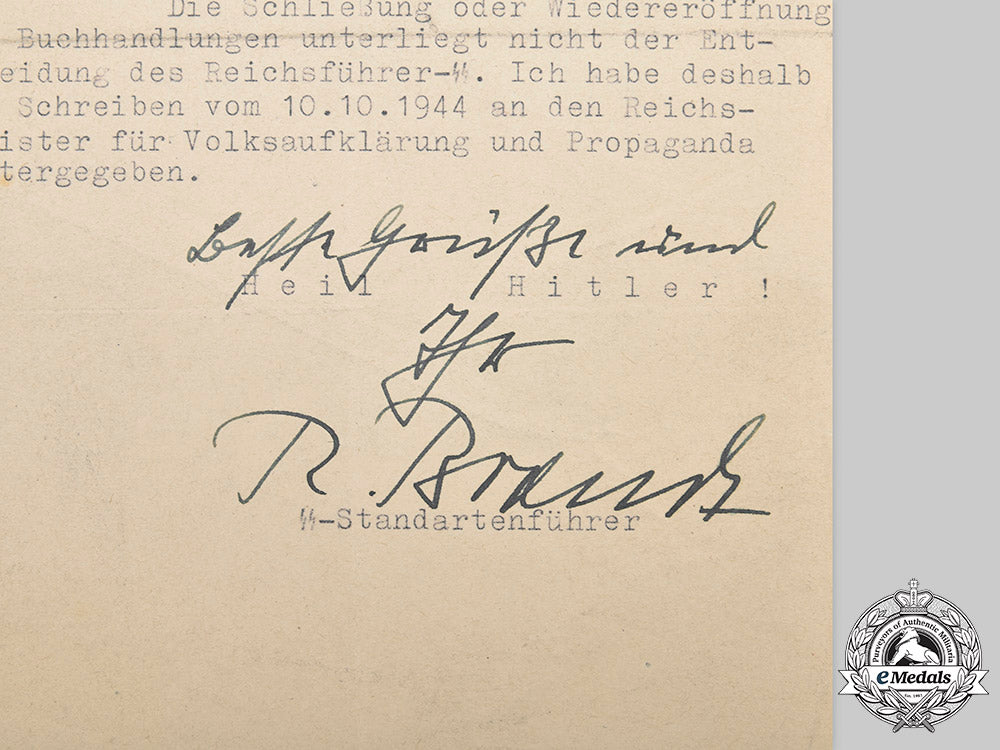 Die Schließung oder Wiedereröffnung
Buchhandlungen unterliegt nicht der Ent-
eidung des Reichsführer-ᛋᛋ. Ich habe deshalb
Schreiben vom 10.10.1944 an den Reichs-
ister für Volksaufklärung und Propaganda
tergegeben.
Beste Grüße und
Heil Hitler !
Ihr
R. Brandt
ᛋᛋ-Standartenführer
Purveyors of Authentic Militaria
eMedals